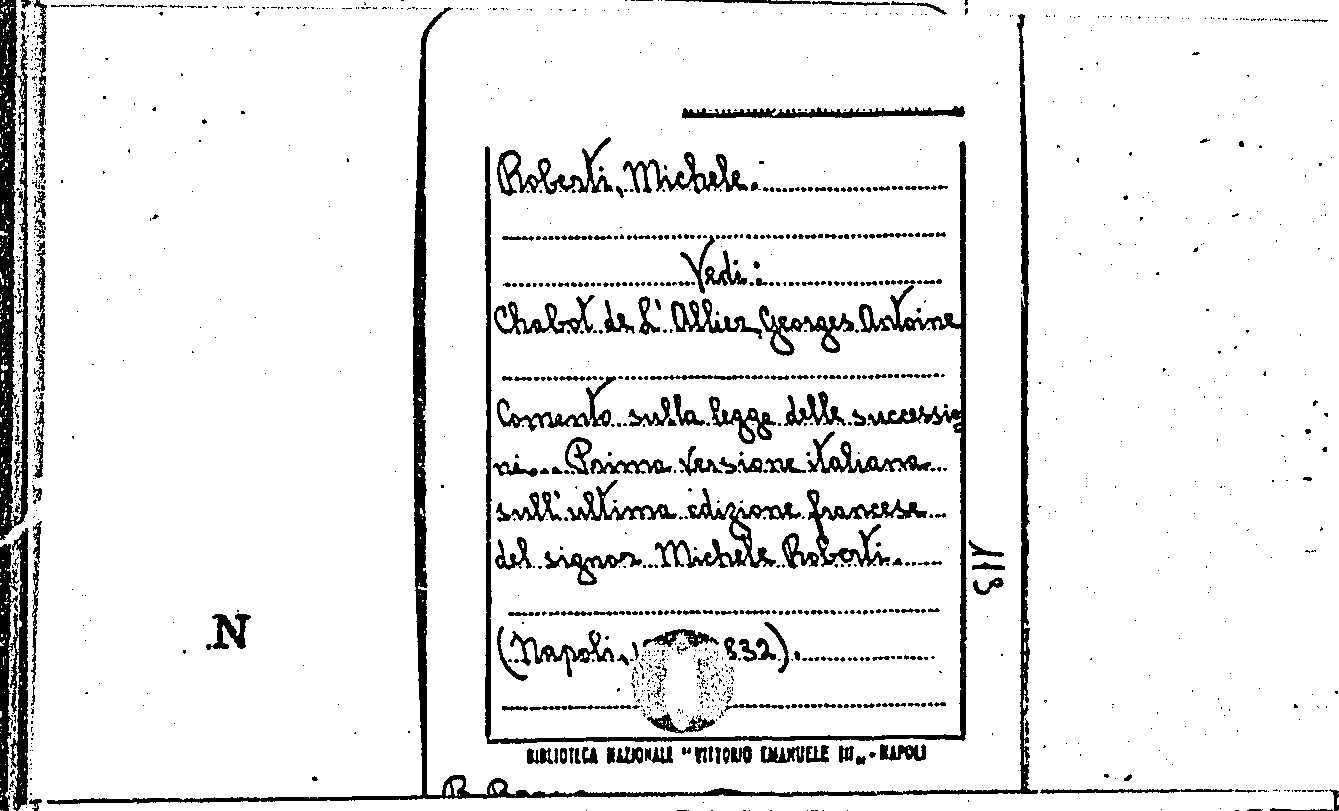 Roberti, Michele.
Vedi:
Chabot de L'Allier, Georges Antoine
Comento sulla legge delle successio
ni... Prima versione italiana
sull'ultima edizione francese
del signor Michele Roberti.
(Napoli, 832).
BIBLIOTECA NAZIONALE "VITTORIO EMANUELE III" - NAPOLI
N.